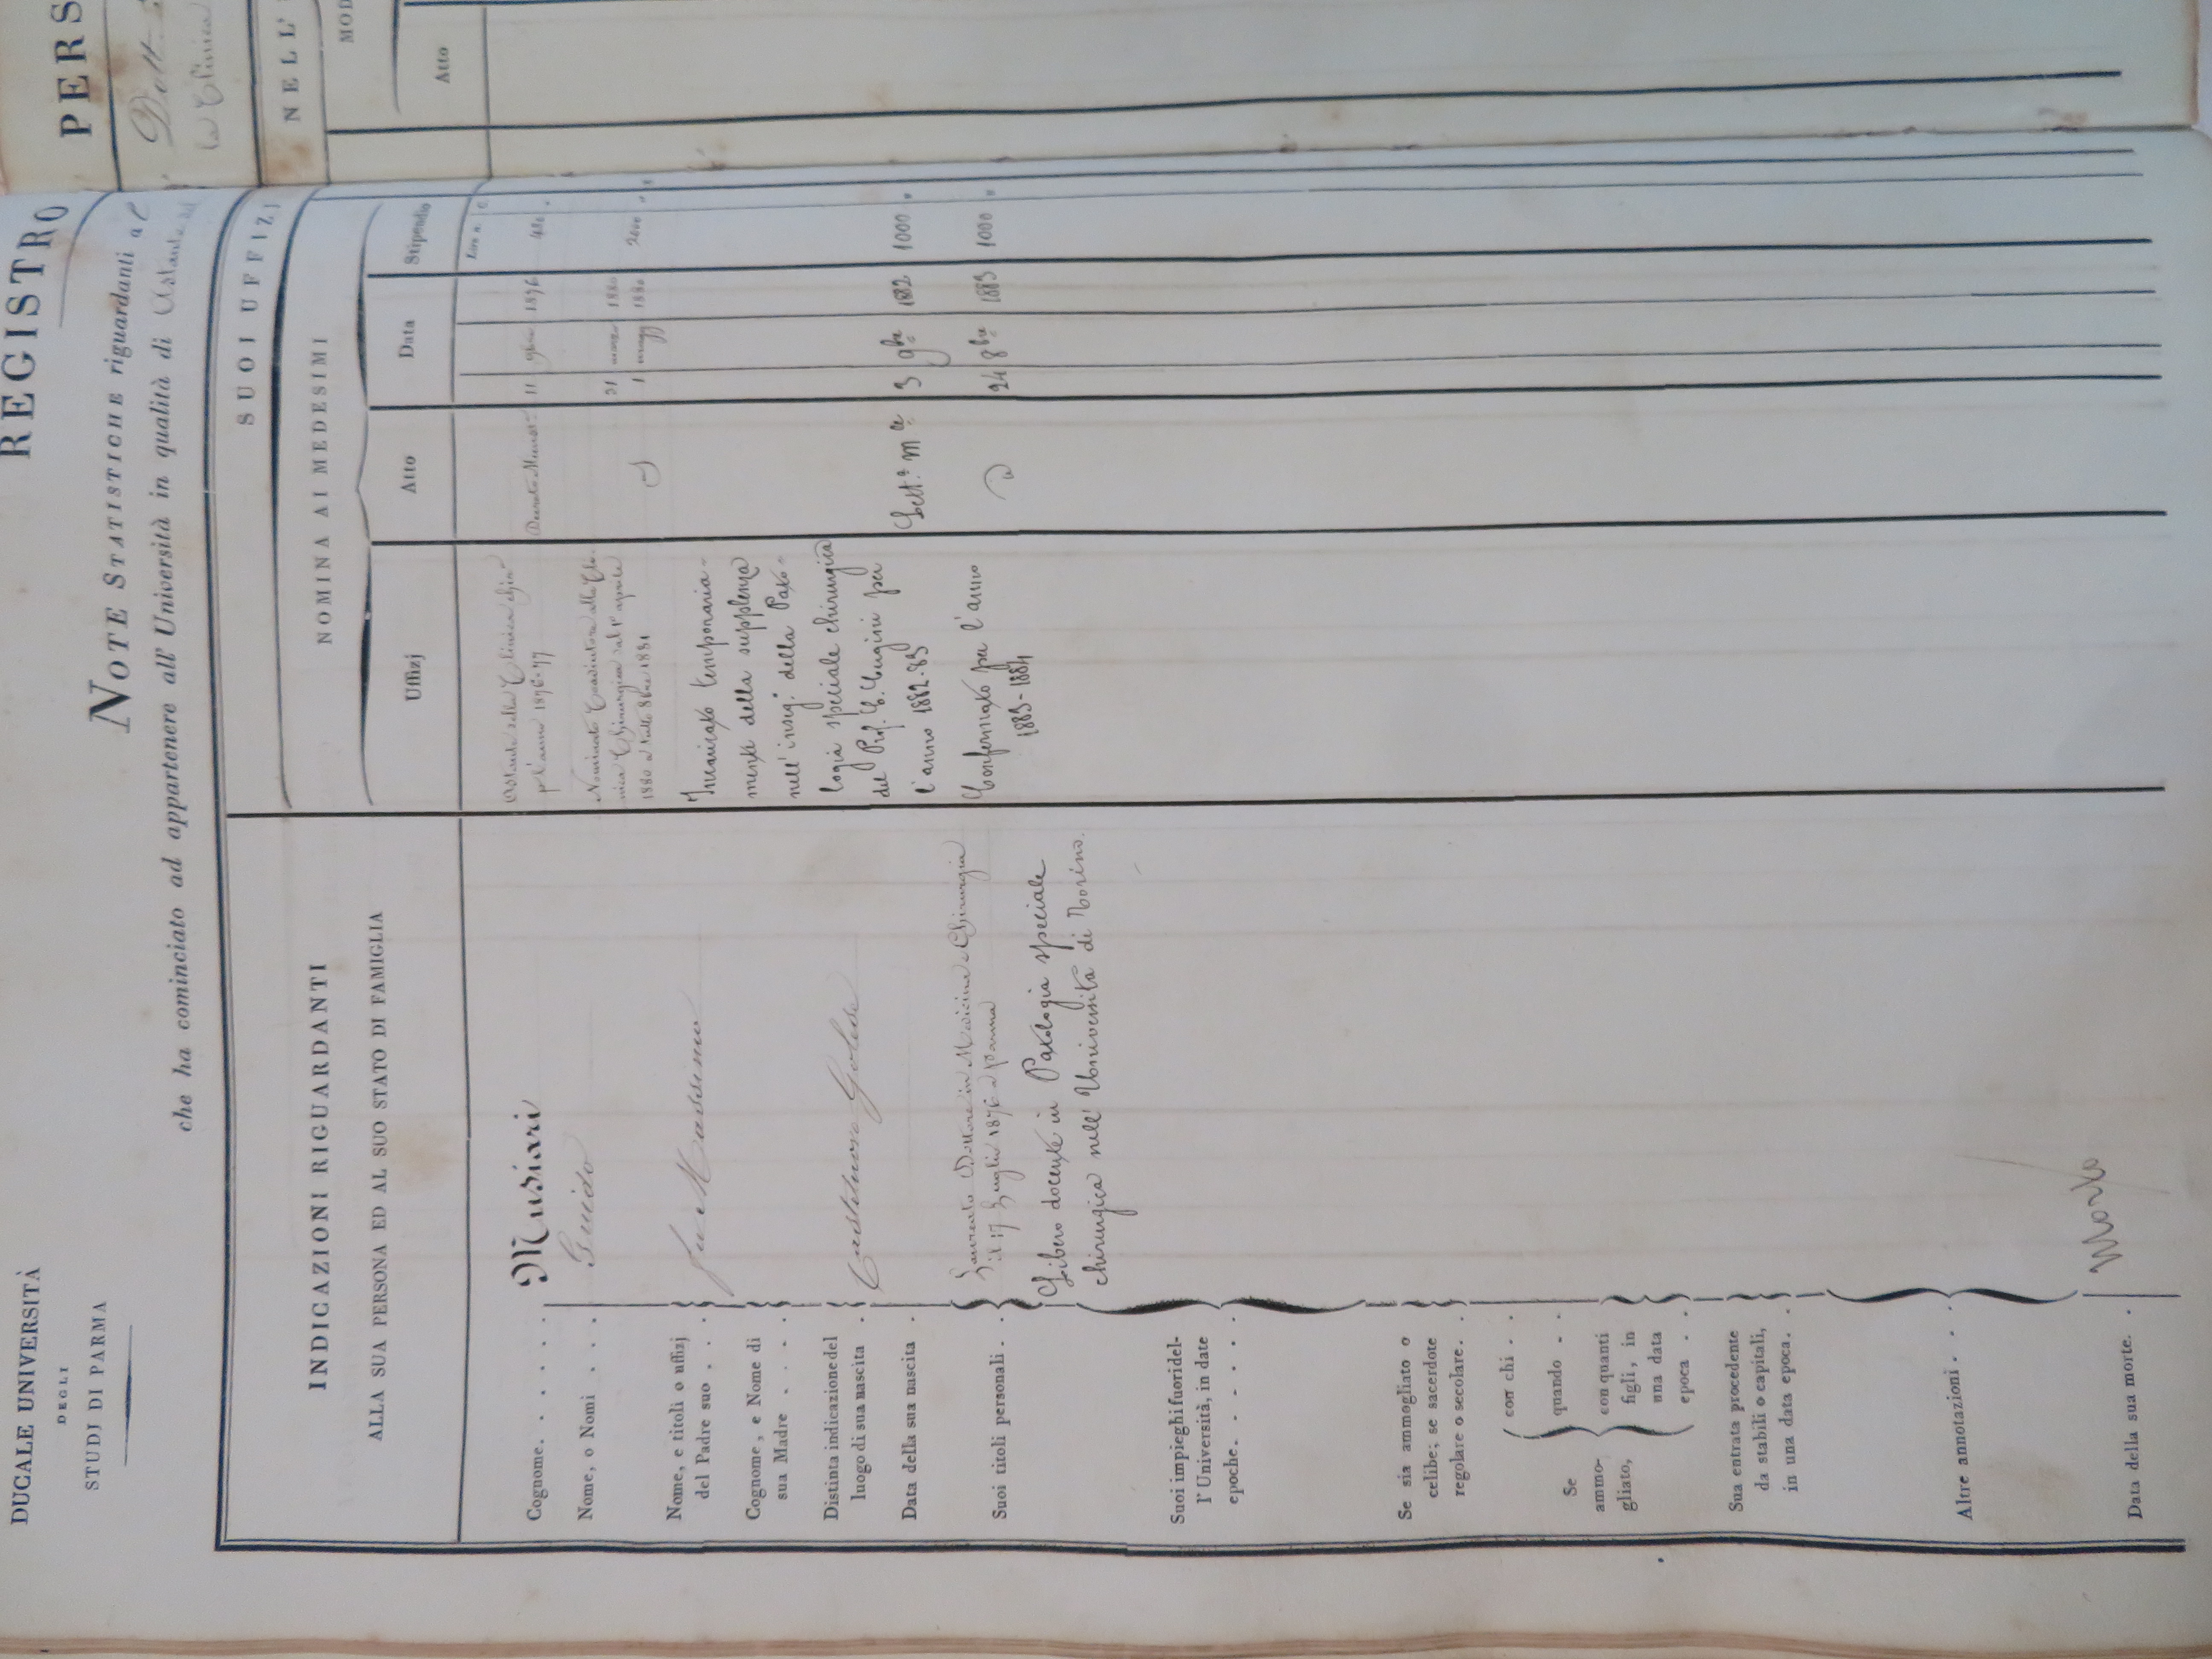 DUCALE UNIVERSITÀ
DEGLI
STUDJ DI PARMA
REGISTRO
NOTE STATISTICHE riguardanti al
che ha cominciato ad appartenere all' Università in qualità di Astante
INDICAZIONI RIGUARDANTI
ALLA SUA PERSONA ED AL SUO STATO DI FAMIGLIA
Cognome. . . . . . Musiari
Nome, o Nomi . . . . Guido
Nome, e titoli o uffizj
del Padre suo . . . fu Massimo
Cognome, e Nome di
sua Madre . . . .
Distinta indicazione del
luogo di sua nascita . Castelnuovo Golese
Data della sua nascita .
Suoi titoli personali . . Laureato Dottore in Medicina e Chirurgia
il 17 Luglio 1876 a Parma
Libero docente in Patologia speciale
chirurgica nell' Università di Torino.
Suoi impieghi fuori del-
l' Università, in date
epoche. . . . . . .
Se sia ammogliato o
celibe; se sacerdote
regolare o secolare. . .
Se
ammo-
gliato,
con chi . .
quando . .
con quanti
figli, in
una data
epoca . .
Sua entrata procedente
da stabili o capitali,
in una data epoca. . .
Altre annotazioni . . .
Data della sua morte. . Morto
SUOI UFFIZJ
NOMINA AI MEDESIMI
Uffizj
Atto
Data
Stipendio
Astante alla Clinica Chir.
pel l'anno 1876-77
11 9bre 1876
Nominato Coadiutore alla Cli-
nica Chirurgica dal 1° aprile
1880 a tutto 8bre 1881
1 magg 1880 2000 "
Incaricato temporaria-
mente della supplenza
nell' inseg.° della Pato-
logia speciale chirurgica
del Prof. C. Inzani per
l'anno 1882-83
Lett.ª M.le 3 9bre 1882 1000 "
Confermato per l'anno
1883-1884
24 8bre 1883 1000 "
PERS
Dott.
la Clinica
NELL'
MOD
Atto